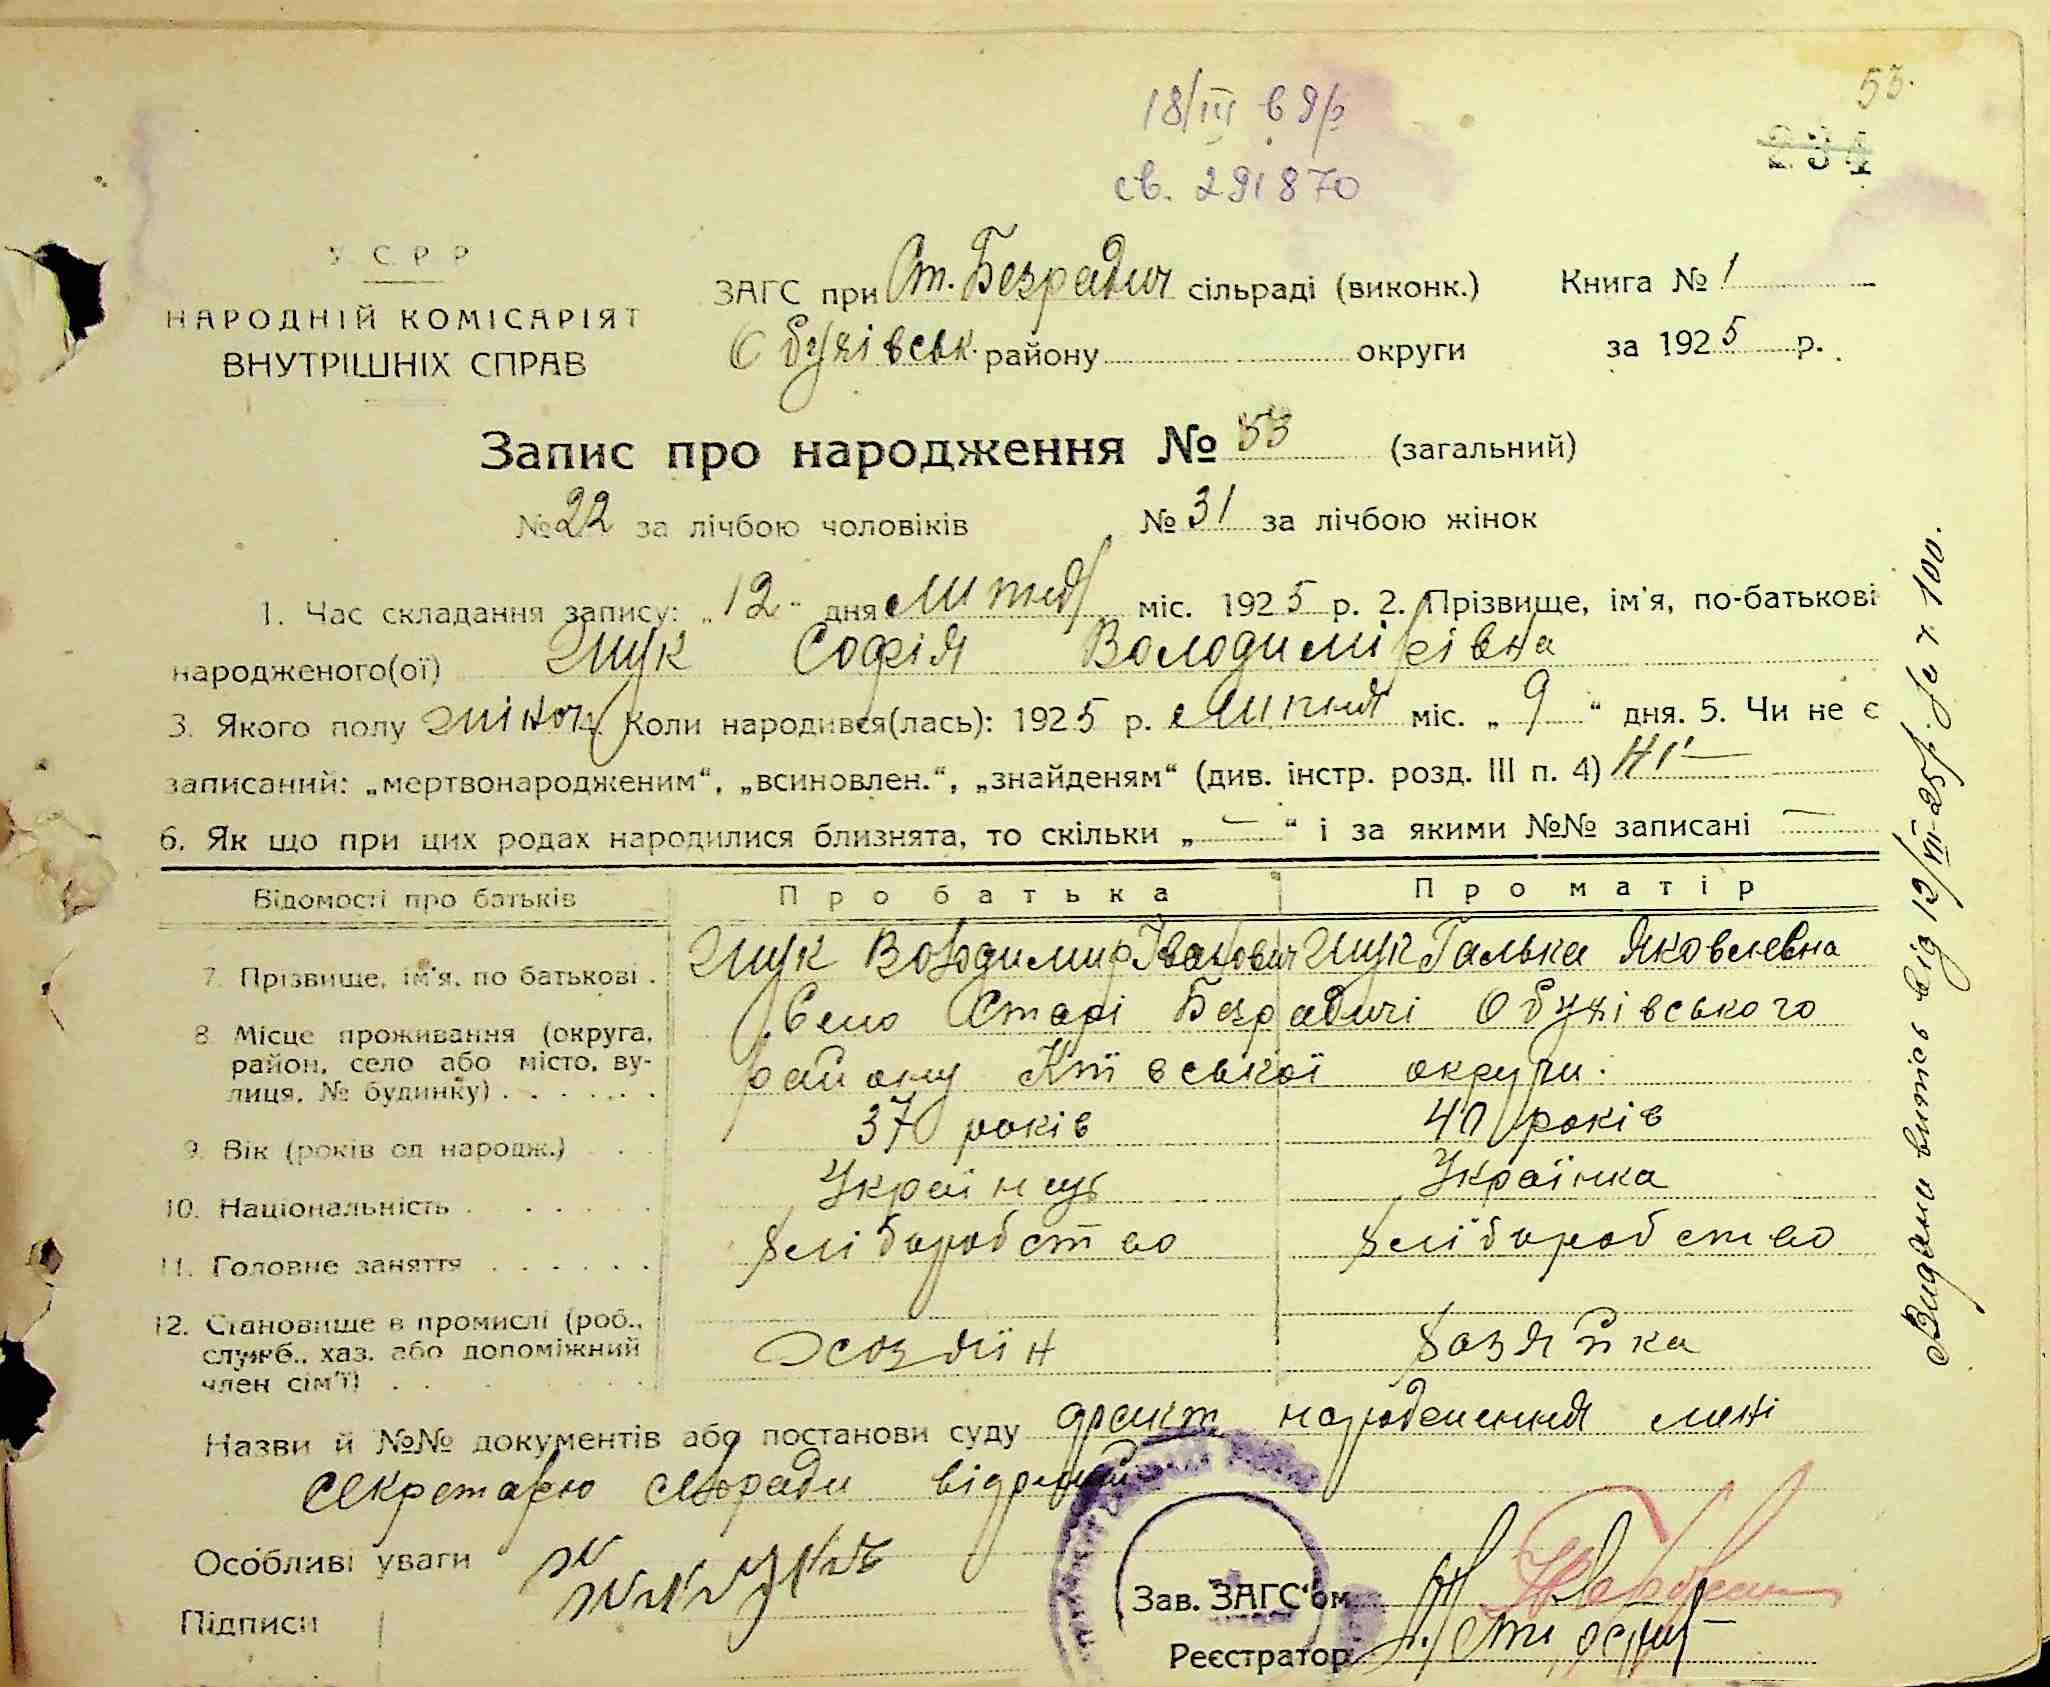 53.
18/III 69р
св. 291870
У С Р Р
НАРОДНІЙ КОМІСАРІЯТ
ВНУТРІШНІХ СПРАВ
ЗАГС при Ст. Безрадич сільраді (виконк.) Книга № 1
Обухівськ. району округи за 1925 р.
Запис про народження № 53 (загальний)
№ 22 за лічбою чоловіків № 31 за лічбою жінок
1. Час складання запису: „12“ дня липня міс. 1925 р. 2. Прізвище, ім'я, по-батькові
народженого(ої) Жук Софія Володимирівна
3. Якого полу жіноч. Коли народився(лась): 1925 р. липня міс. „9“ дня. 5. Чи не є
записаний: „мертвонародженим“, „всиновлен.“, „знайденям“ (див. інстр. розд. III п. 4) Ні —
6. Як що при цих родах народилися близнята, то скільки „—“ і за якими №№ записані —
Відомості про батьків Про батька Про матір
7. Прізвище, ім'я, по батькові . Жук Володимир Іванович Жук Галька Яковлевна
8. Місце проживання (округа, район, село або місто, ву-лиця, № будинку) . . . . . . Село Старі Безрадичі Обухівського
району Київської округи.
9. Вік (років од народж.) . . . 37 років 40 років
10. Національність . . . . . . Українець Українка
11. Головне заняття . . . . . . хліборобство хліборобство
12. Становище в промислі (роб., служб., хаз. або допоміжний член сім'ї) . . . хозяїн хозяйка
Назви й №№ документів або постанови суду факт народження мені
секретарю сельради відомий
Особливі уваги
Підписи
Зав. ЗАГС'ом
Реєстратор
Видана витісь від 12/VII-25р. за № 100.